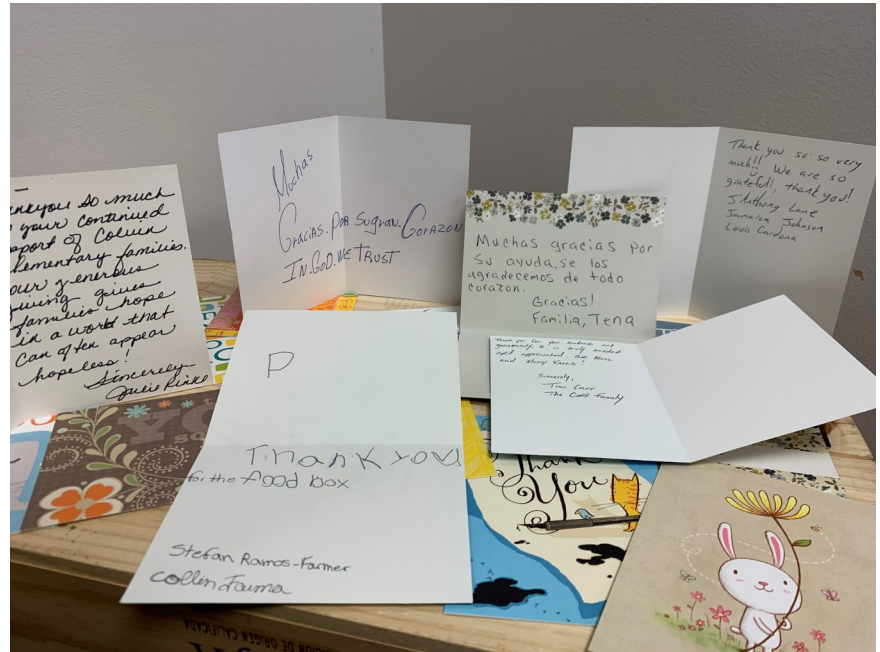 so much
your continued
of Colvin
families.
generous
giving gives
families hope
in a world that
can often appear
hopeless!
Sincerely
Julie
Muchas
Gracias. Por su gran. Corazon
IN. GOD. WE TRUST
Muchas gracias por
su ayuda, se los
agradecemos de todo
corazon.
Gracias!
Familia, Tena
Thank you so so very
much!! We are so
grateful!, thank you!
J'Anthony Lane
Jamaica Johnson
Louis Cardona
Thank you for your kindness and
generosity, it is truly needed
and appreciated. God Bless
and Merry Xmas!
Sincerely,
Tim Carr
The Carr Family
P
Thank you
for the food box
Stefan Ramos-Farmer
Collin
Thank
You
YO
DE ORIGEN CALIFICADA